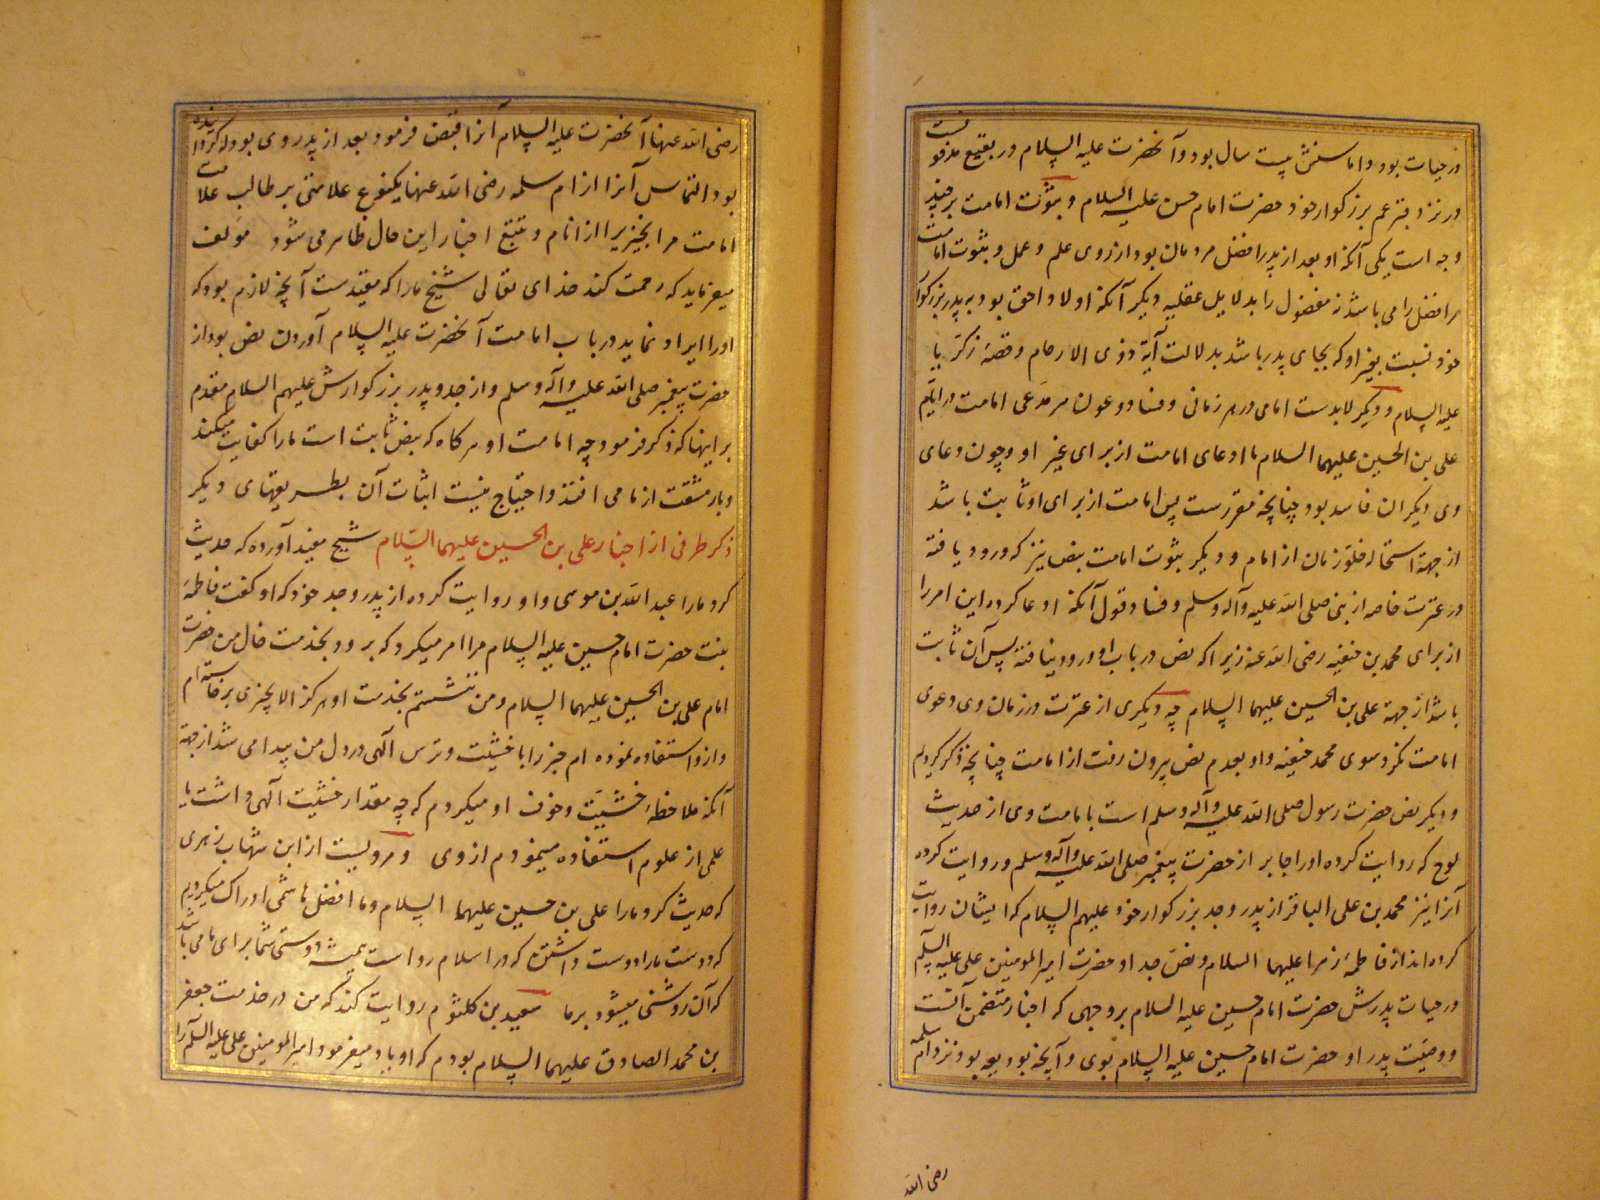 در حیات بود و اما سنش بیست سال بود و آنحضرت علیه السلام در بقیع مدفونست
در نزد قبر عم بزرگوار خود حضرت امام حسن علیه السلام و ثبوت امامت بر چند
وجه است یکی آنکه او بعد از پدر افضل مردمان بود از روی علم و عمل و ثبوت امامت
مر افضل را می باشد نه مفضول را بدلایل عقلیه دیگر آنکه او اولا و احق بود به پدر بزرگوار
خود نسبت بغیر او که بجای پدر باشد بدلالت آیة ذوی الارحام و قصهٔ زکریا
علیه السلام و دیگر لابدست امامی در هر زمانی و فساد دعوی مر مدعی امامت در ایام
علی بن الحسین علیهما السلام با ادعای امامت از برای غیر او و چون دعای
وی دیگران فاسد بود چنانچه مقررست پس امامت از برای او ثابت باشد
از جهة استحاله خلوّ زمان از امام و دیگر ثبوت امامت بنص نیز که ورود یافته
در عترت خاصه از نبی صلی الله علیه و آله و سلم و فساد قول آنکه ادعا کرده این امر را
از برای محمد بن حنفیه رضی الله عنه زیرا که نص در باب او ورود نیافته پس آن ثابت
باشد از جهة علی بن الحسین علیهما السلام چه دیگری از عترت در زمان وی دعوی
امامت نکرد سوی محمد حنفیه و او بعدم نص بیرون رفت از امامت چنانچه ذکر کردیم
و دیگر نص حضرت رسول صلی الله علیه و آله و سلم است با امامت وی از حدیث
لوح که روایت کرده او را جابر از حضرت پیغمبر صلی الله علیه و آله و سلم و روایت کرده
آنرا نیز محمد بن علی الباقر از پدر و جد بزرگوار خود علیهم السلام که ایشان روایت
کرده اند از فاطمهٔ زهرا علیها السلام و نص جد او حضرت امیر المومنین علی علیه السلم
در حیات پدرش حضرت امام حسین علیه السلام بروجهی که اخبار متضمن آنست
و وصیّت پدر او حضرت امام حسین علیه السلام بوی و آنچه بودیعه بود نزد ام سلمه
رضی الله
رضی الله عنها آنحضرت علیه السلام آنرا قبض فرمود بعد از پدر وی بود که گردانیده
بود التماس آنرا از ام سلمه رضی الله عنها یکنوع علامتی بر طالب علامت
امامت مر آنچیز را از انام و متتبع اخبار این حال ظاهر می شود مولف
میفرماید که رحمت کند خدای تعالی شیخ ما را که مفیدست آنچه لازم بود که
او را ایراد نماید در باب امامت آنحضرت علیه السلام آوردن نص بود از
حضرت پیغمبر صلی الله علیه و آله و سلم و از جد و پدر بزرگوارش علیهم السلام مقدم
بر اینها که ذکر فرمود چه امامت او هرگاه که بنص ثابت است ما را کفایت میکند
و بار مشقت از ما می افتد و احتیاج نیست اثبات آن بطریقهای دیگر
ذکر طرفی از اخبار علی بن الحسین علیهما السّلام شیخ مفید آورده که حدیث
کرد ما را عبد الله بن موسی و او روایت کرده از پدر و جد خود که او گفت فاطمهٔ
بنت حضرت امام حسین علیه السلام مرا امر میکرد که برو بخدمت خال من حضرت
امام علی بن الحسین علیهما السلام و من ننشستم بخدمت او هرگز الا بچیزی برخاسته ام
و از او استفاده نموده ام خیر را با خشیّت و ترس آلهی در دل من پیدا می شد از جهة
آنکه ملاحظهٔ خشیّت و خوف او میکردم که چه مقدار خشیّت آلهی داشت یا
علمی از علوم استفاده مینمودم از وی و مرویست از ابن شهاب زهری
که حدیث کرد ما را علی بن حسین علیهما السلام و ما افضل هاشمی ادراک میکردیم
که دوست ما را دوست داشتن که در اسلام رواست همیشه دوستی شما برای ما می باشد
که آن روشنی میشود بر ما سعید بن کلثوم روایت کند که من در خدمت جعفر
بن محمد الصادق علیهما السلام بودم که او یاد میفرمود امیر المومنین علی علیه السلم را